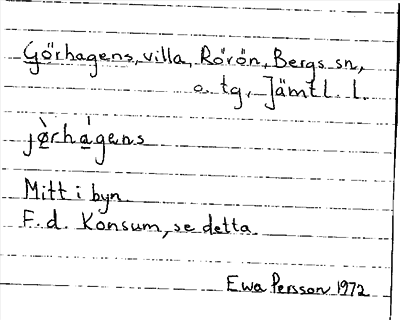 Görhagens, villa, Rörön, Bergs sn,
o. tg, Jämtl. l.
jø̀rhágens
Mitt i byn.
F.d. Konsum, se detta.
Ewa Persson 1972